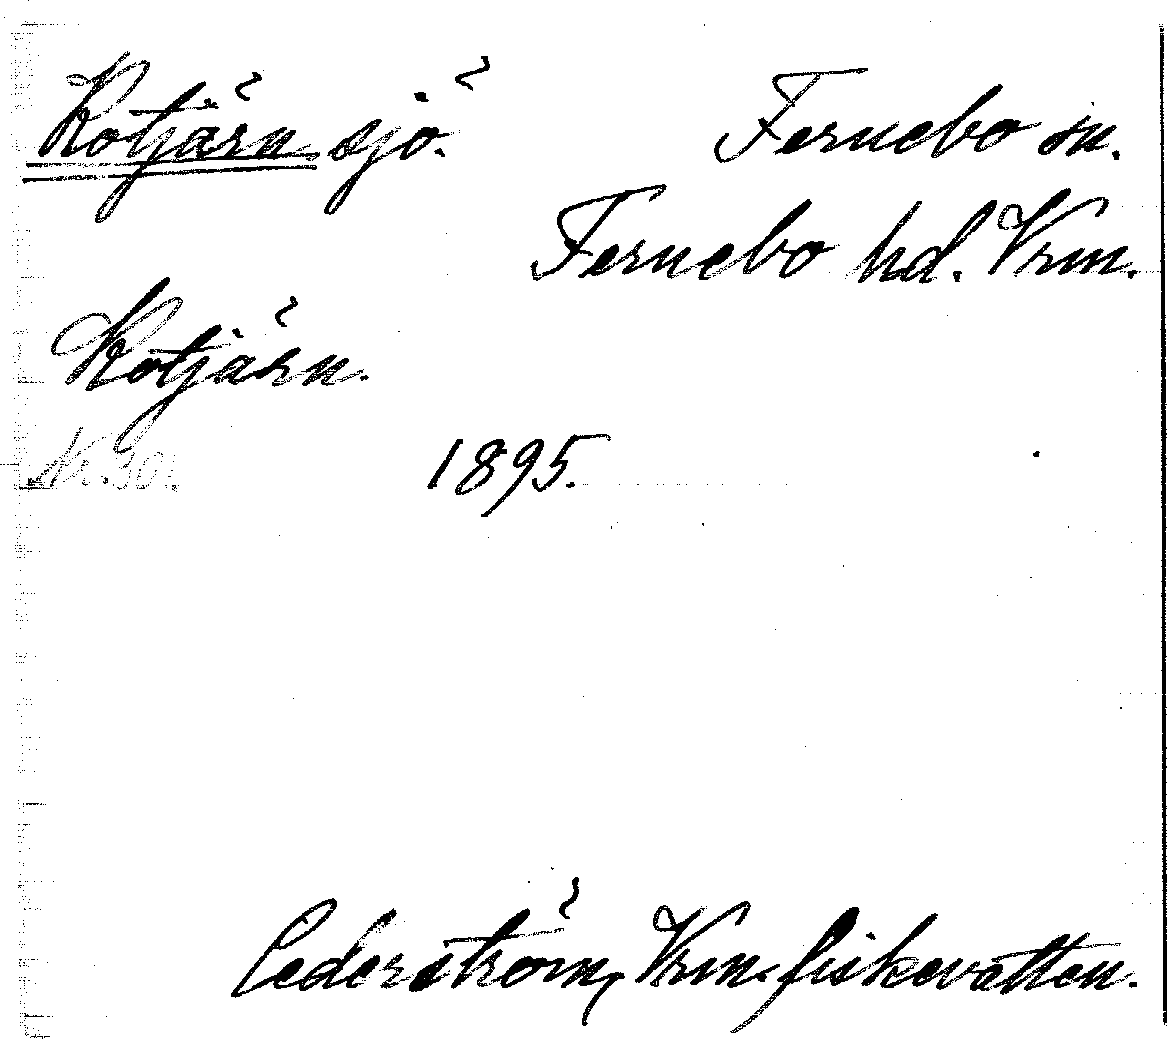 Kotjärn sjö. Fernebo sn.
Fernebo hd. Vrm.
Kotjärn.
Nr. 30. 1895.
Cederström, Vrm. fiskevatten.